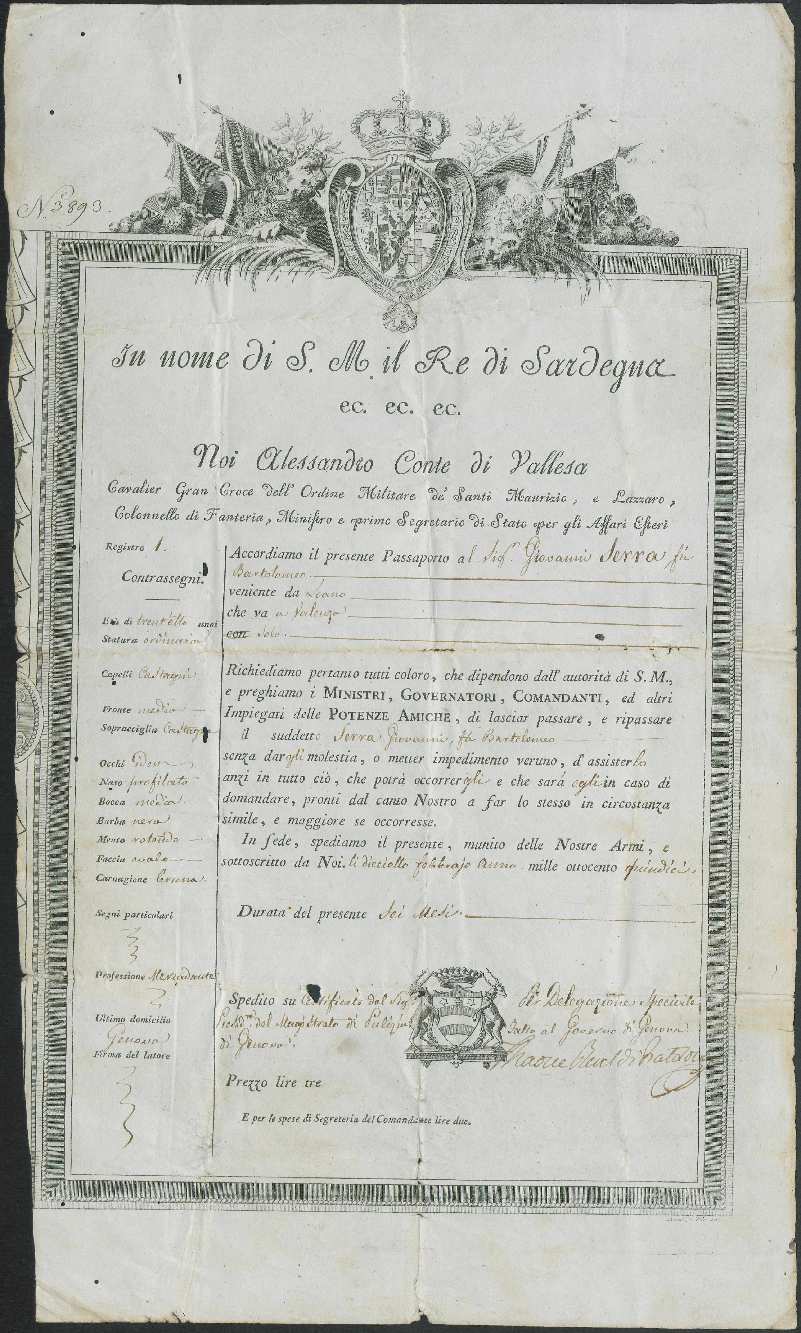 N. 3893.
In nome di S. M. il Re di Sardegna
ec. ec. ec.
Noi Alessandro Conte di Vallesa
Cavalier Gran Croce dell' Ordine Militare de' Santi Maurizio, e Lazzaro,
Colonnello di Fanteria, Ministro e primo Segretario di Stato per gli Affari Esteri
Registro 1.
Contrassegni.
Età di trentotto anni
Statura ordinaria
Capelli Castagni
Fronte media
Sopracciglia Castagne
Occhi Idem
Naso profilato
Bocca media
Barba nera
Mento rotondo
Faccia ovale
Carnagione bruna
Segni particolari
Professione Mercadante
Ultimo domicilio
Genova
Firma del latore
Accordiamo il presente Passaporto al Sig.r Giovanni Serra fù
Bartolomeo
veniente da
che va a Valenza
con solo.
Richiediamo pertanto tutti coloro, che dipendono dall' autorità di S. M.,
e preghiamo i Ministri, Governatori, Comandanti, ed altri
Impiegati delle Potenze Amiche, di lasciar passare, e ripassare
il suddetto Serra Giovanni, fù Bartolomeo
senza dargli molestia, o metter impedimento veruno, d' assisterlo
anzi in tutto ciò, che potrà occorrergli e che sarà egli in caso di
domandare, pronti dal canto Nostro a far lo stesso in circostanza
simile, e maggiore se occorresse.
In fede, spediamo il presente, munito delle Nostre Armi, e
sottoscritto da Noi. li dieciotto febbrajo Anno mille ottocento quindici.
Durata del presente Sei Mesi.
Spedito su Certificato del Sig.r
Presid.te del Magistrato di Pulizia
di Genova.
Per Delegazione Speciale
Fatta al Governo di Genova
Prezzo lire tre
E per le spese di Segreteria del Comandante lire due.